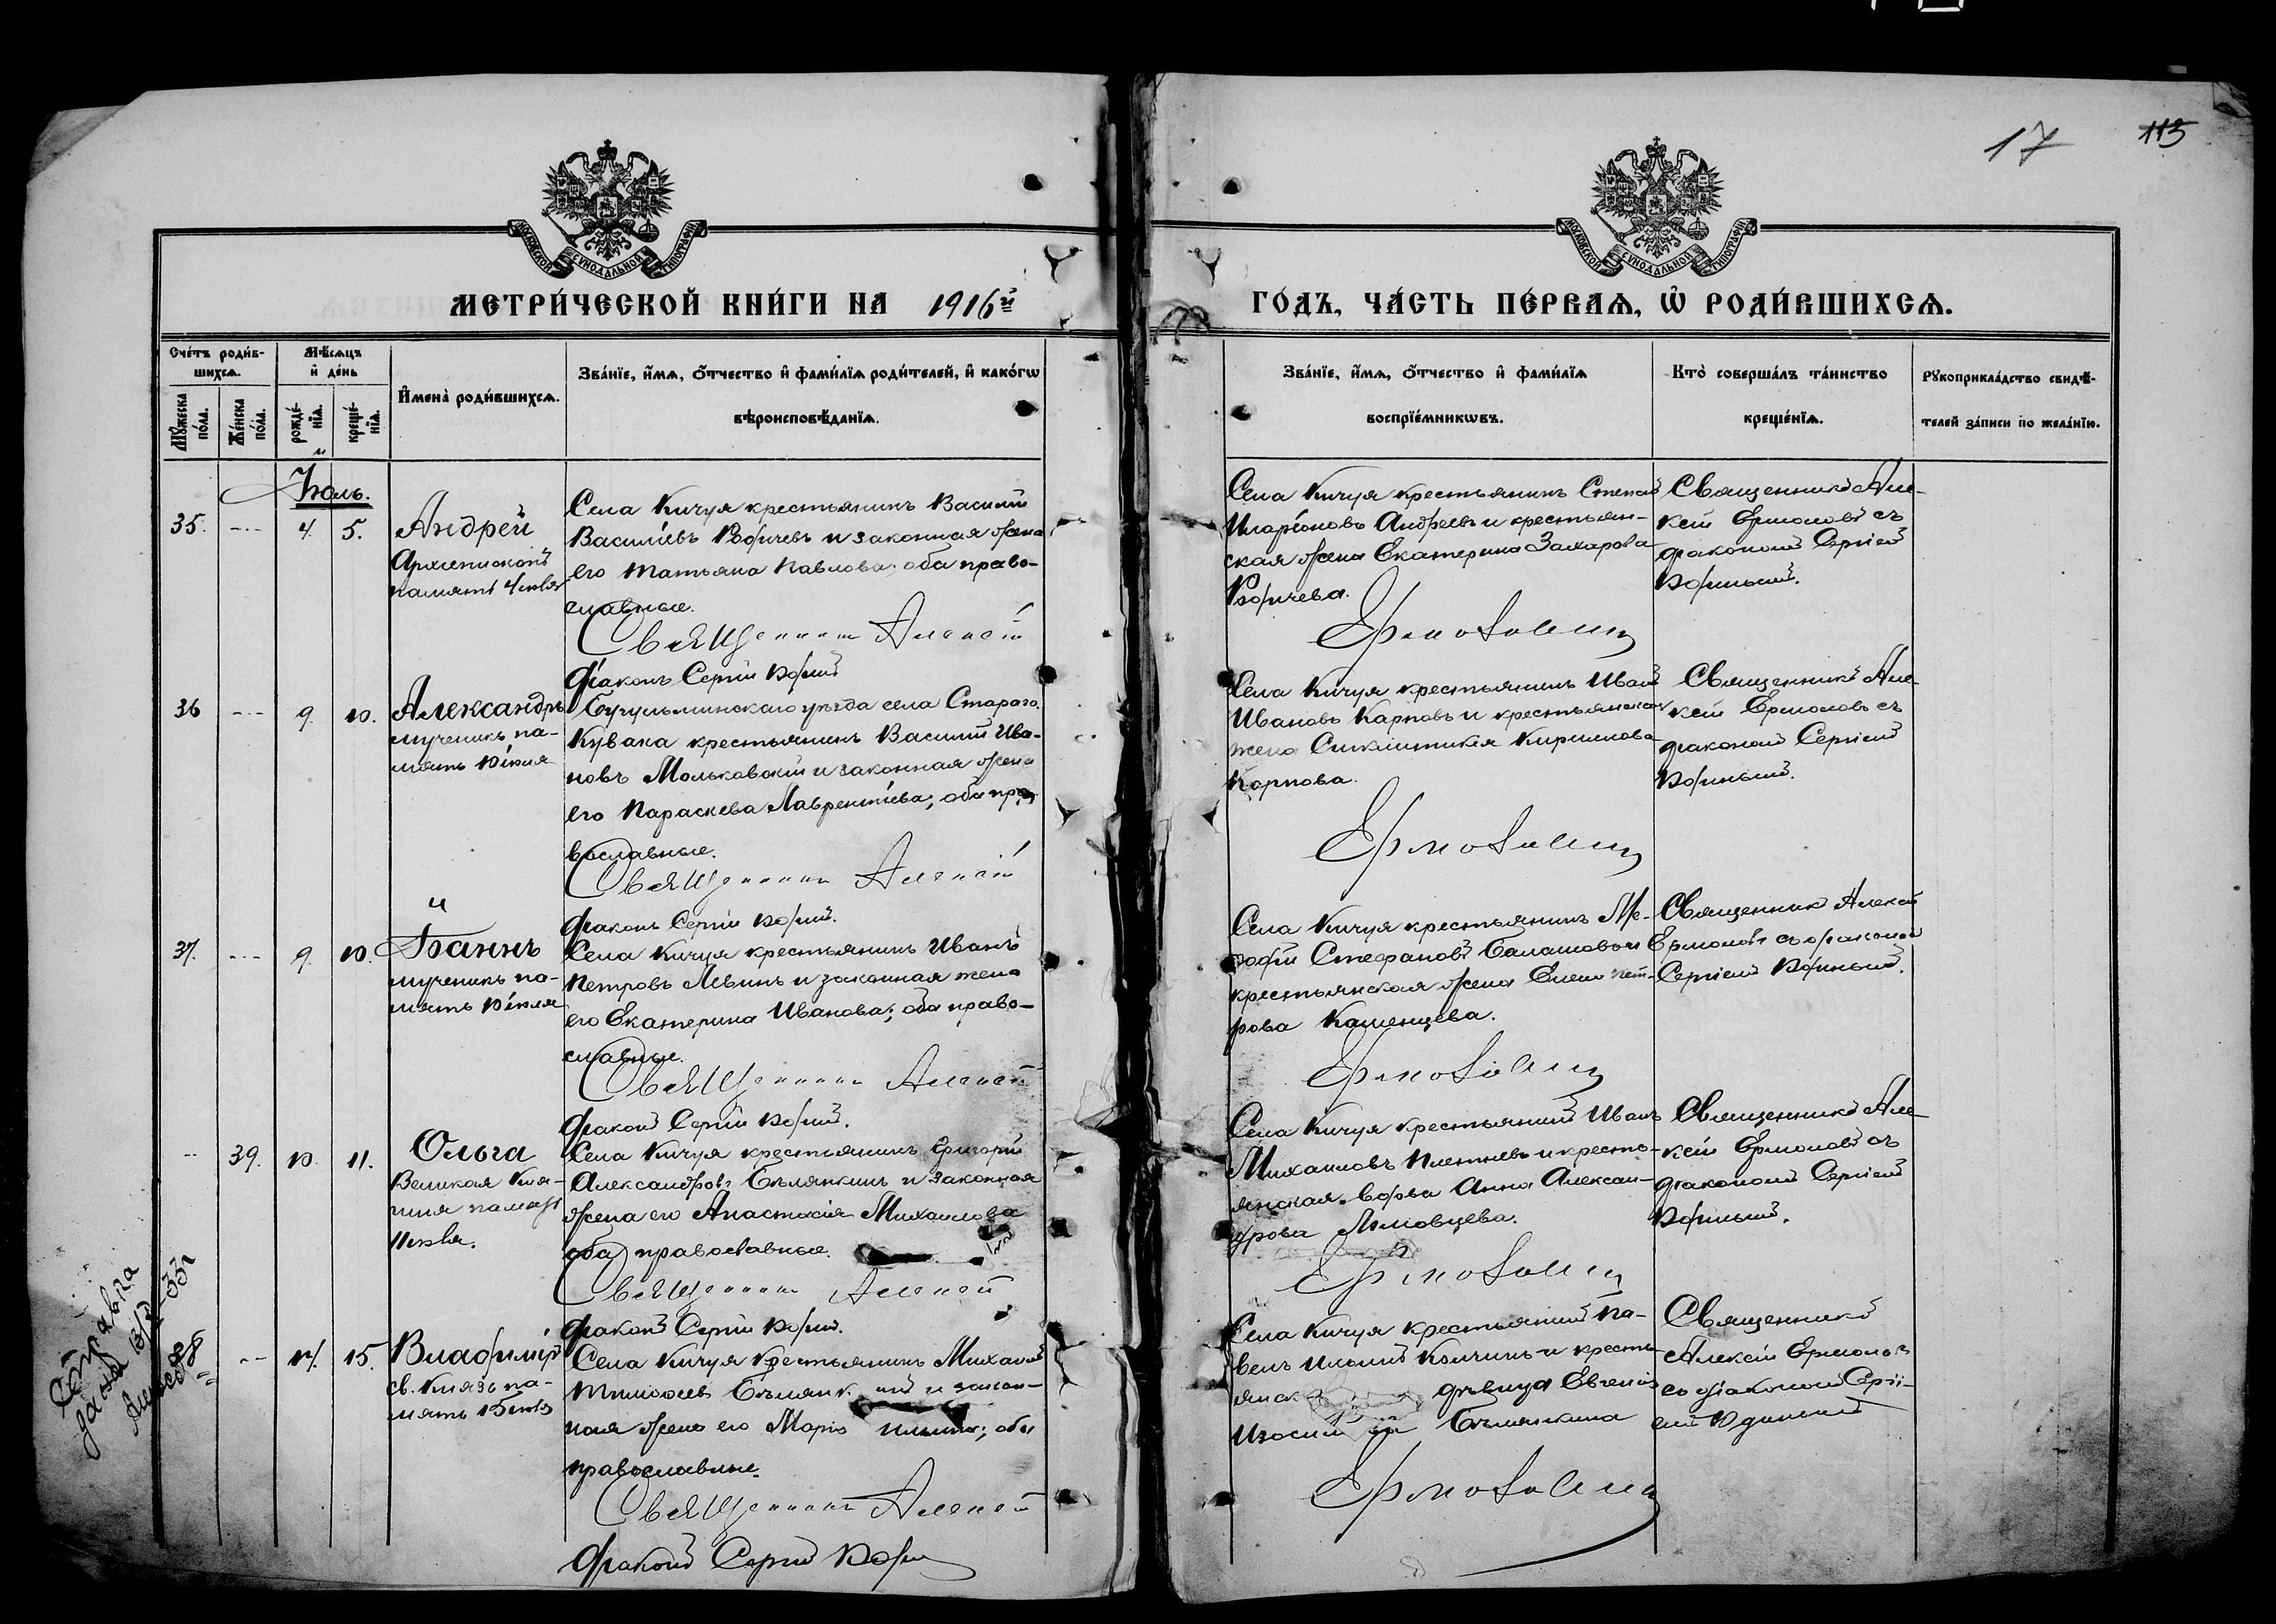 17 113
МОСКОВСКОЙ СѴНОДАЛЬНОЙ ТИПОГРАФІИ
МОСКОВСКОЙ СѴНОДАЛЬНОЙ ТИПОГРАФІИ
МЕТРИ́ЧЕСКОЙ КНИ́ГИ НА 1916й
ГО́ДЪ, ЧА́СТЬ ПЕ́РВАѦ, Ѡ҆ РОДИ́ВШИХСѦ.
Сче́тъ роди́в-
шихсѧ.
Мꙋ́жеска по́ла.
Же́нска по́ла.
Мѣ́сѧцъ
и҆ де́нь
рожде́-
нїѧ.
креще́-
нїѧ.
И҆мена̀ роди́вшихсѧ.
Зва́нїе, и҆́мѧ, ѻ҆́тчество и҆ фами́лїѧ роди́телей, и҆ како́гѡ
вѣроисповѣ́данїѧ.
Зва́нїе, и҆́мѧ, ѻ҆́тчество и҆ фами́лїѧ
воспрїе́мникѡвъ.
Кто̀ соверша́лъ та́инство
креще́нїѧ.
Рꙋкоприкла́дство свидѣ́-
телей за́писи по жела́нїю.
Іюль.
35. -·- 4. 5. Андрей
Архіепископъ
память 4 іюля
Села Кичуя крестьянинъ Василій
Васильевъ и законная жена
его Татьяна Павлова; оба право-
славные.
Священникъ Алексій
Діаконъ Сергій
Села Кичуя крестьянинъ Степанъ
Иларіоновъ Андреевъ и крестьян-
ская жена Екатерина Захарова
Ермоловъ
Священникъ Але-
ксій Ермоловъ съ
діакономъ Сергіемъ
36 -·- 9. 10. Александръ
мученикъ па-
мять 10 іюля
Бугульминскаго уѣзда села Стараго
Кувака крестьянинъ Василій Ива-
новъ и законная жена
его Параскева Лаврентіева; оба пра-
вославные.
Священникъ Алексій
Діаконъ Сергій
Села Кичуя крестьянинъ Иванъ
Ивановъ Карповъ и крестьянская
жена Кириллова
Карпова.
Ермоловъ
Священникъ Але-
ксій Ермоловъ съ
діакономъ Сергіемъ
37. -·- 9. 10. Іоаннъ
мученикъ па-
мять 10 іюля
Села Кичуя крестьянинъ Иванъ
Петровъ Львинъ и законная жена
его Екатерина Иванова; оба право-
славные.
Священникъ Алексій
Діаконъ Сергій
Села Кичуя крестьянинъ
Стефановъ и
крестьянская жена Елена Пет-
рова Каменцева.
Ермоловъ
Священникъ Алексій
Ермоловъ съ діакономъ
Сергіемъ
-- 39. 10. 11. Ольга
Великая Кня-
гиня память
11 іюля.
Села Кичуя крестьянинъ Григорій
Александровъ Бѣлянкинъ и законная
жена его Анастасія Михаилова
оба православные.
Священникъ Алексій
Діаконъ Сергій
Села Кичуя крестьянинъ Иванъ
Михаиловъ Плетневъ и кресть-
янская вдова Анна Алексан-
дрова
Ермоловъ
Священникъ Але-
ксій Ермоловъ съ
діакономъ Сергіемъ
38 -- 14. 15. Владиміръ
св. Князь па-
мять 15 іюля
Села Кичуя крестьянинъ Михаилъ
и закон-
ная жена его Марія; оба
православные.
Священникъ Алексій
Діаконъ Сергій
Села Кичуя крестьянинъ Па-
велъ и кресть-
янск дѣвица Евгенія
Бѣлянкина
Ермоловъ
Священникъ
Алексій Ермоловъ
со діакономъ Сергі-
емъ
Справка
дана